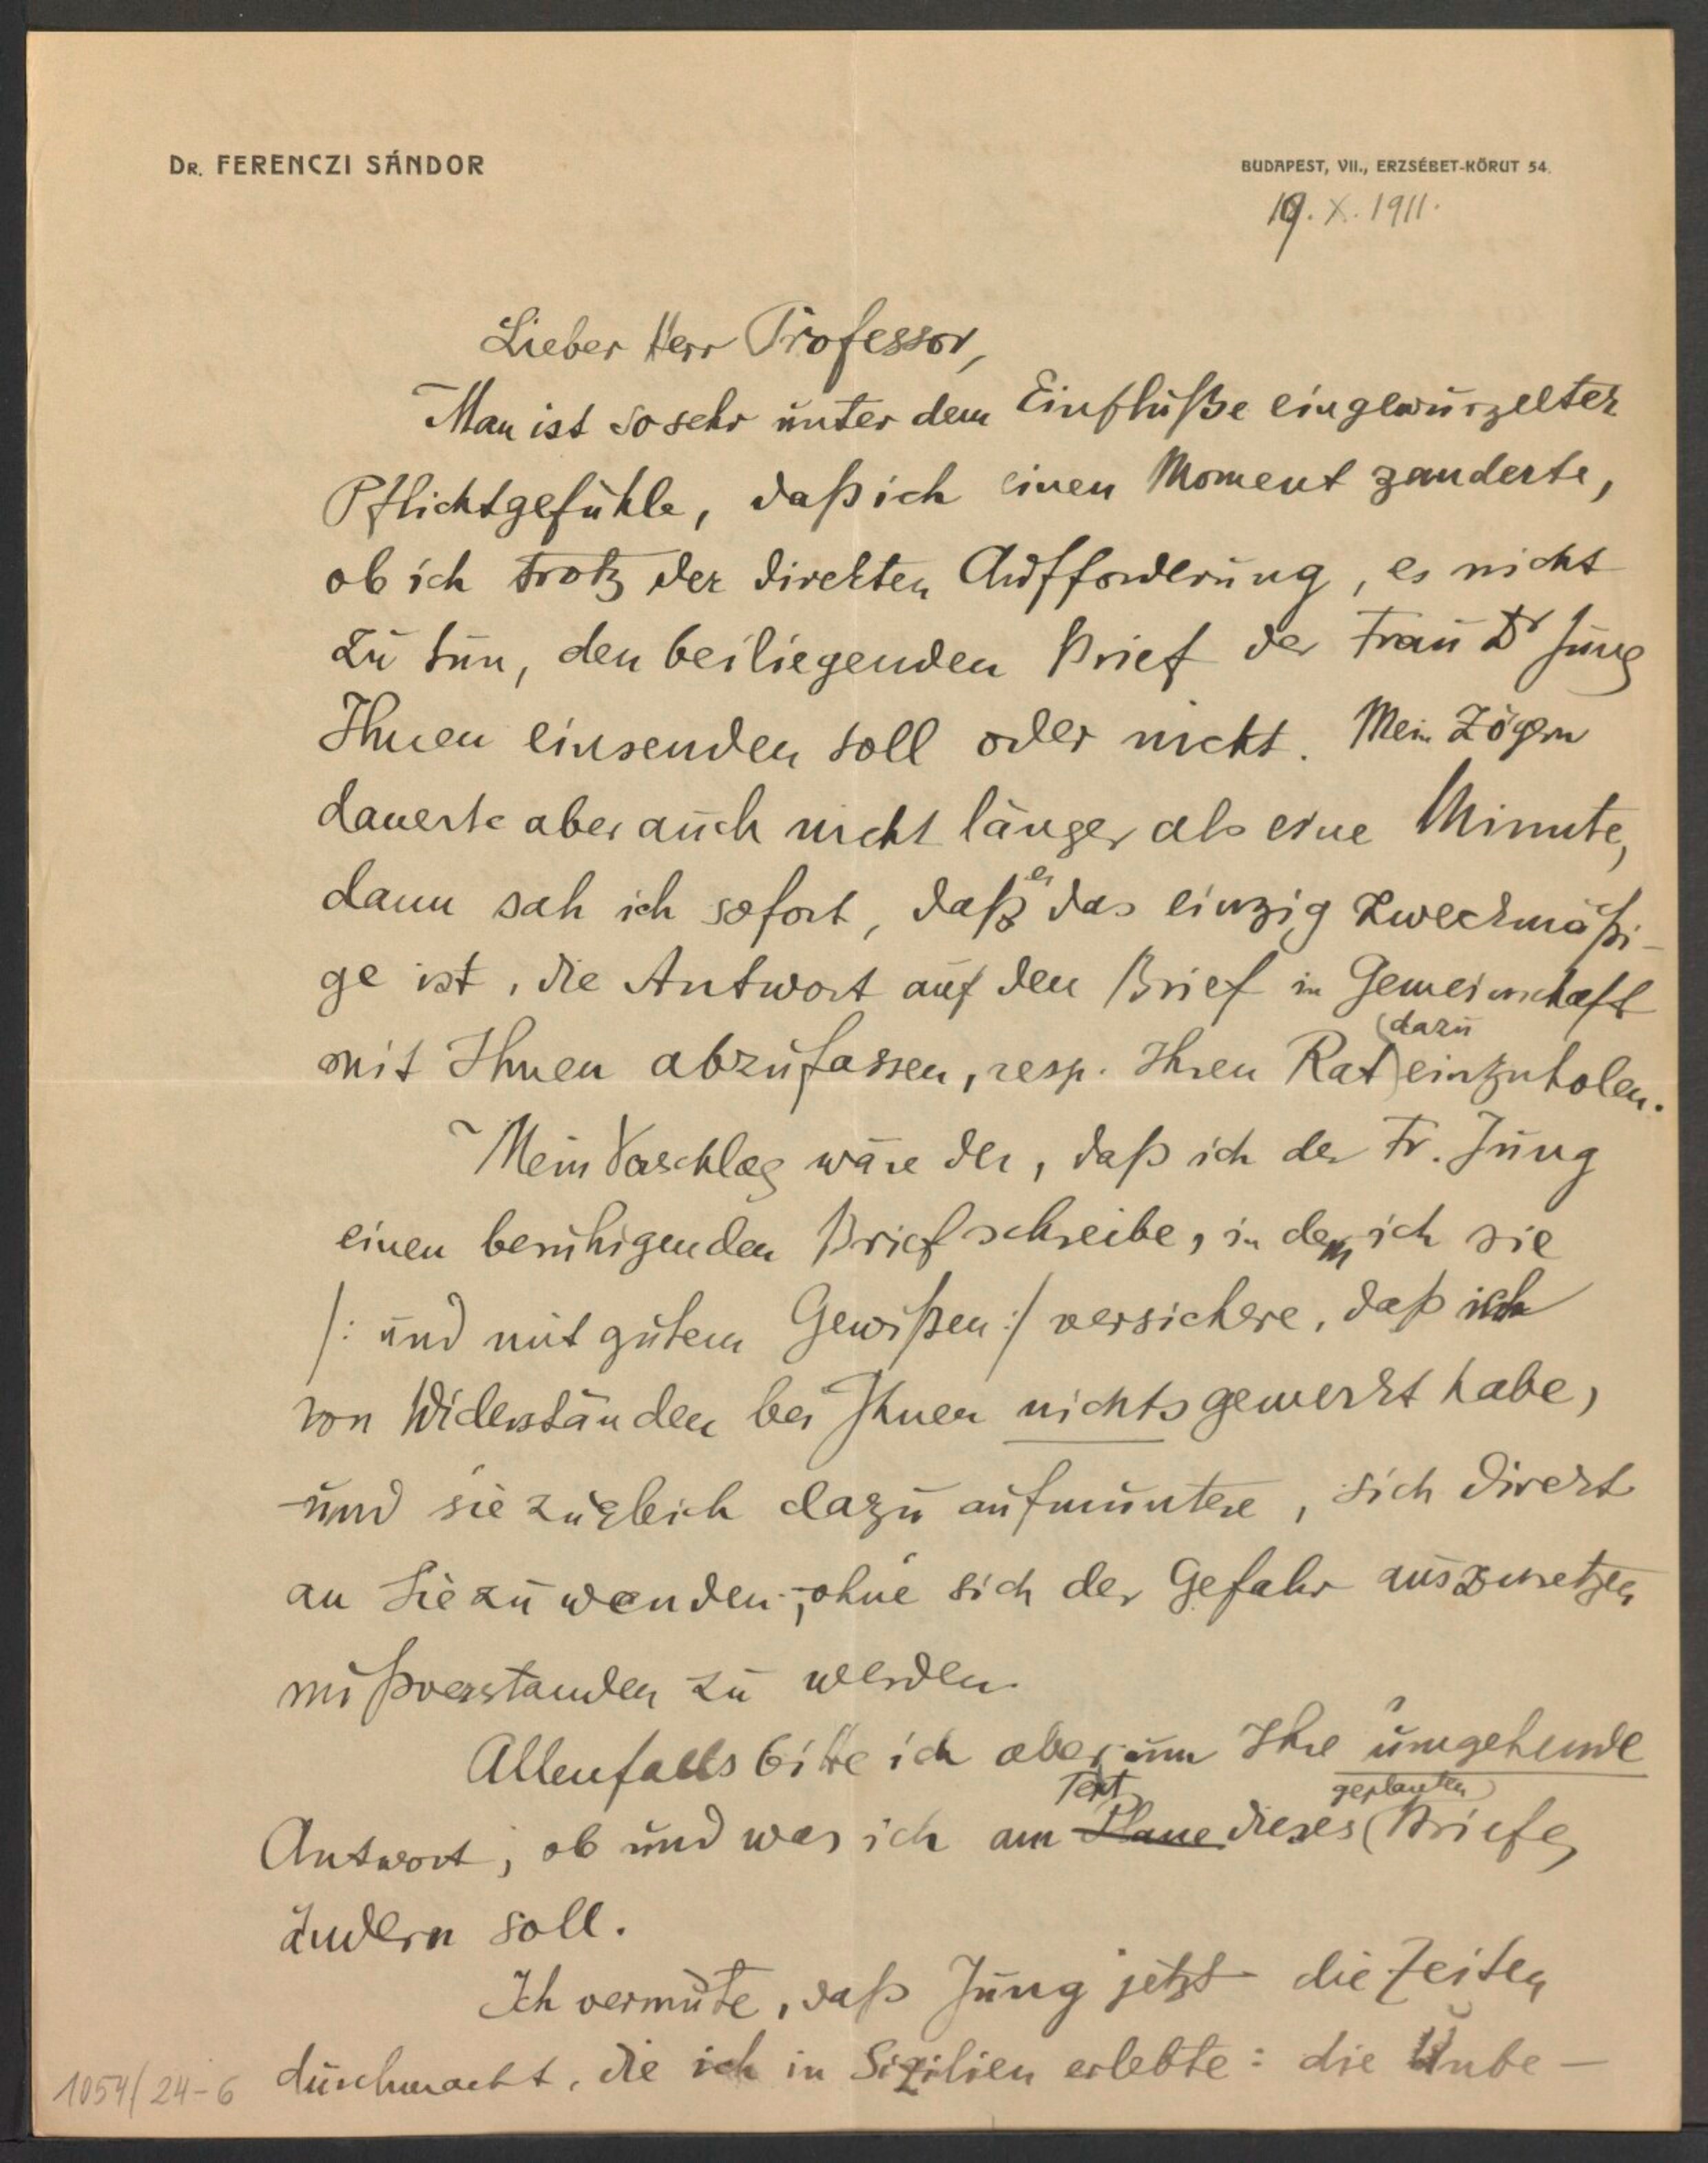 Dr. FERENCZI SÁNDOR
BUDAPEST, VII., ERZSÉBET-KÖRUT 54.
19. X. 1911.
Lieber Herr Professor,
Man ist so sehr unter dem Einflusße eingewurzelter
Pflichtgefühle, daß ich einen Moment zauderte,
ob ich trotz der direkten Aufforderung, es nicht
zu tun, den beiliegenden Brief der Frau Dr Jung
Ihnen einsenden soll oder nicht. Mein Zögern
dauerte aber auch nicht länger als eine Minute,
dann sah ich sofort, daß es das einzig zweckmäßi-
ge ist, die Antwort auf den Brief in Gemeinschaft
mit Ihnen abzufassen, resp. Ihren Rat dazu einzuholen.
Mein Vorschlag wäre der, daß ich der Fr. Jung
einen beruhigenden Brief schreibe, in dem ich sie
/: und mit gutem Gewißen :/ versichere, daß ich
von Widerständen bei Ihnen nichts gemerkt habe,
und sie zugleich dazu aufmuntere, sich direkt
an Sie zu wenden, ohne sich der Gefahr auszusetzen
mißverstanden zu werden.
Allenfalls bitte ich aber um Ihre umgehende
Antwort, ob und was ich am Plane Text dieses geplanten Briefes
ändern soll.
Ich vermute, daß Jung jetzt die Zeiten
durchmacht, die ich in Sizilien erlebte: die Unbe-
1054/24-6